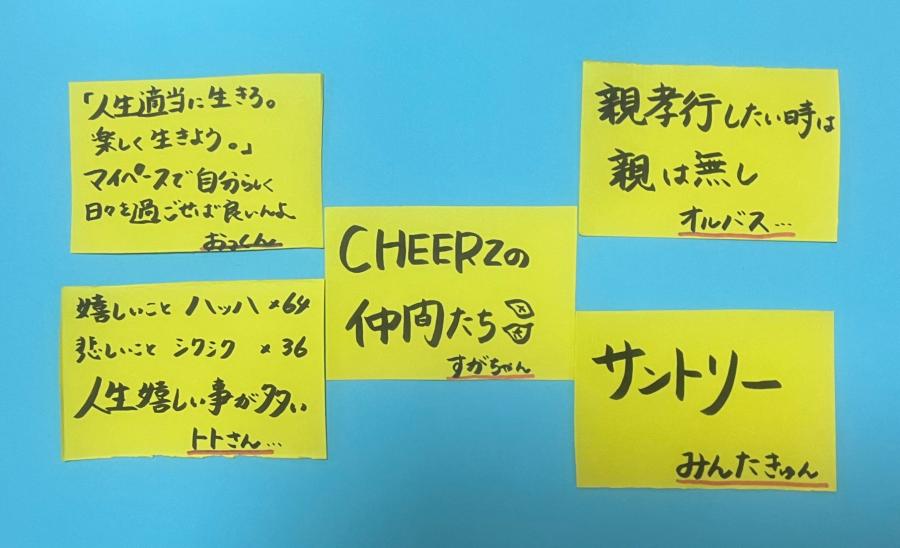 「人生適当に生きろ。
楽しく生きよう。」
マイペースで自分らしく
日々を過ごせば良いんよ
おっくん
嬉しいこと ハッハ ×64
悲しいこと シクシク ×36
人生嬉しい事が多い
トトさん…
CHEERZの
仲間たち
すがちゃん
親孝行したい時は
親は無し
オルバス…
サントリー
みんたきゅん